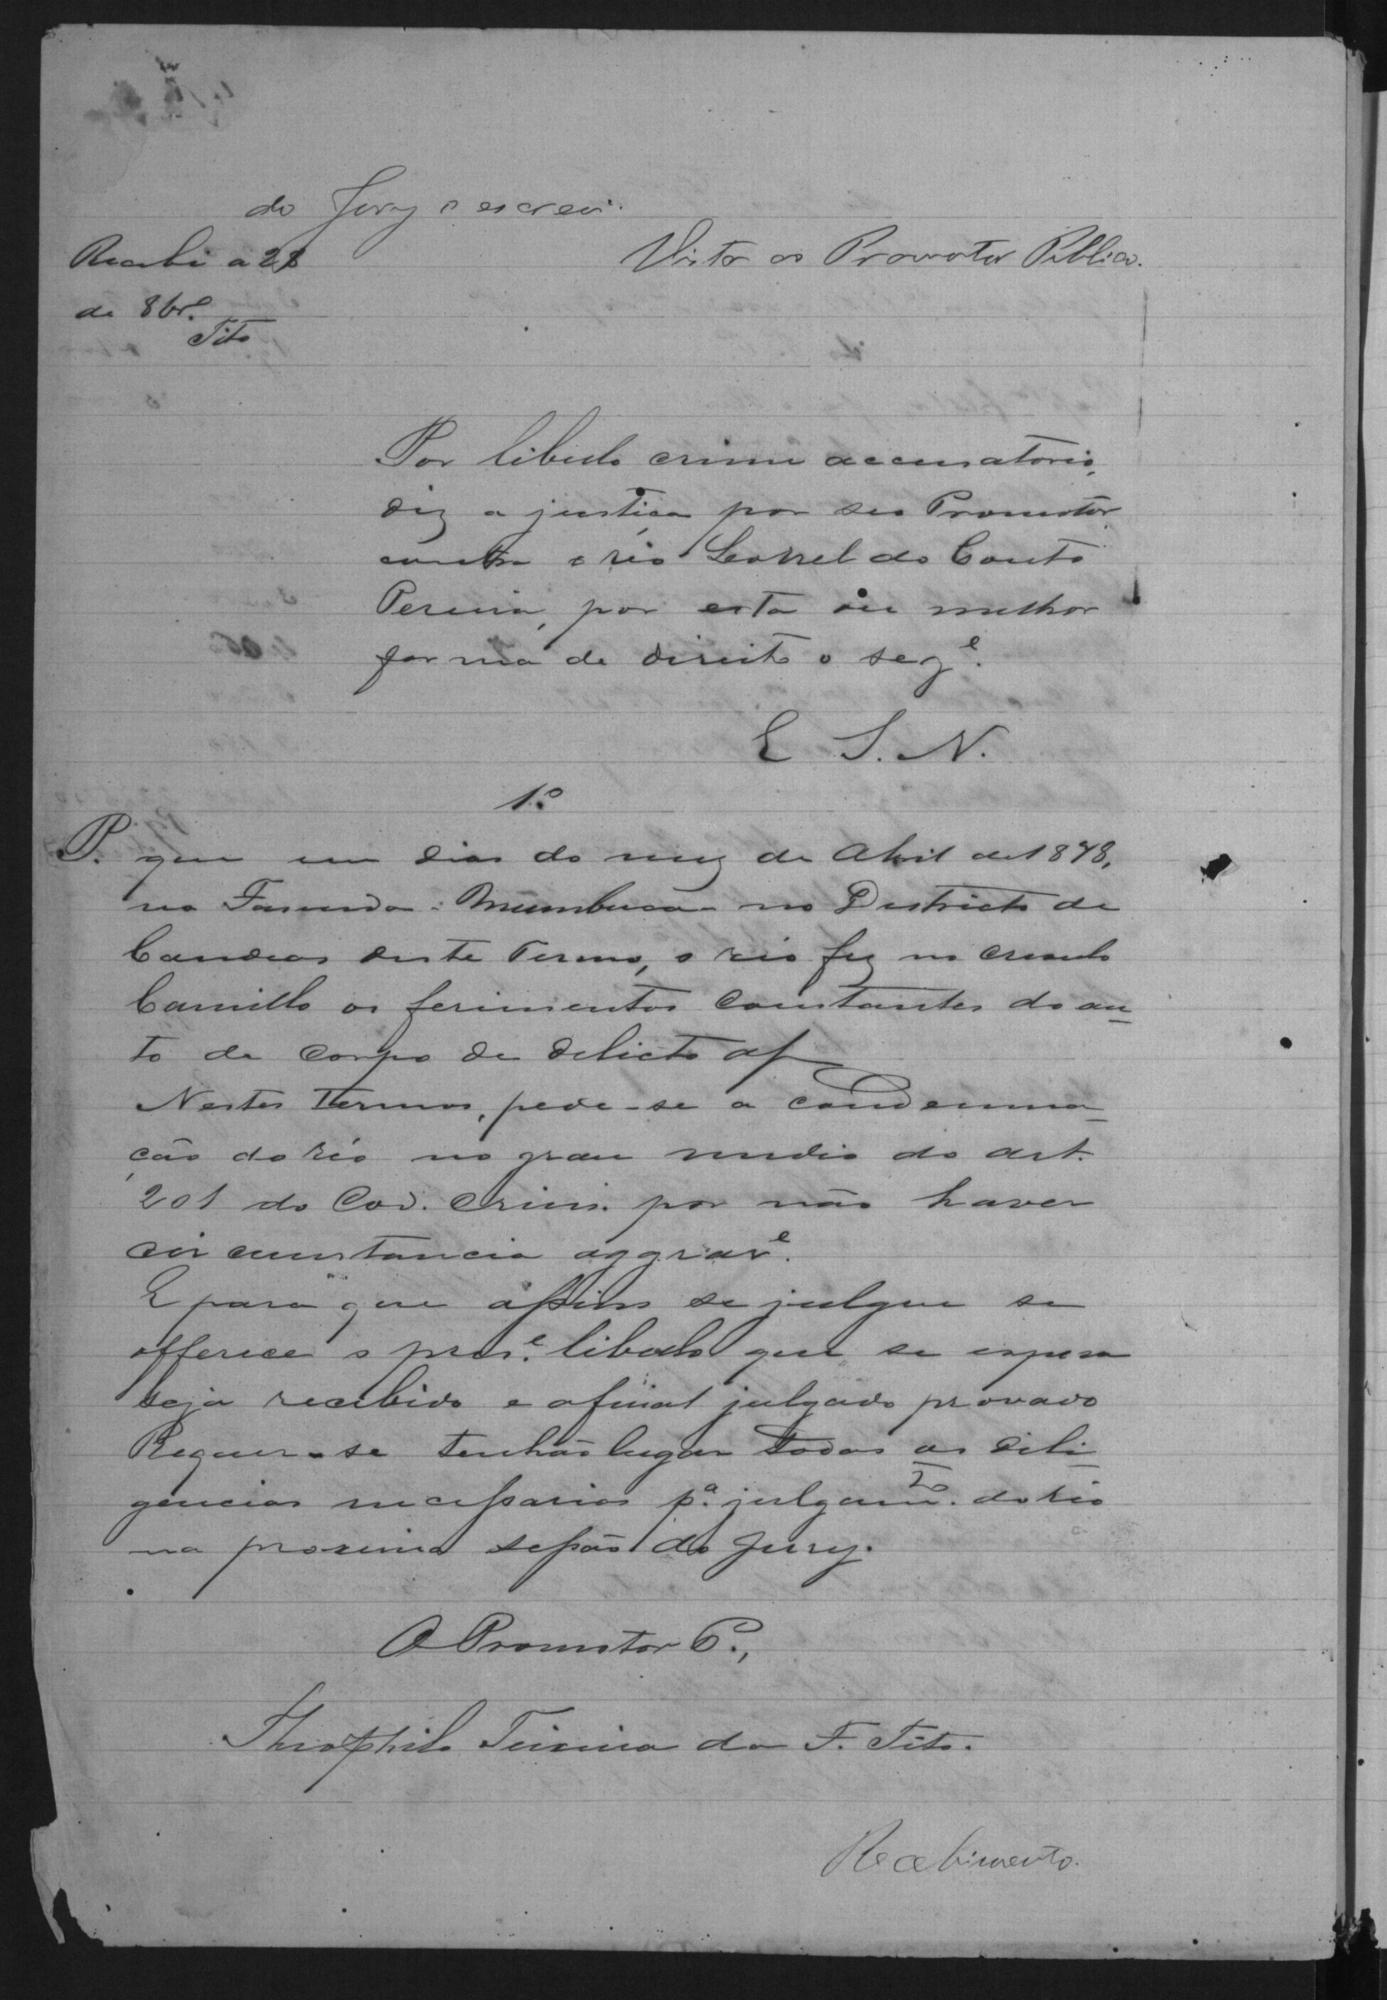 do Jury o escrevi.
Vista ao Promotor Publico.
Recebi a 28
de 8br.e
Tito
Por libello crime accusatorio,
diz a justiça por seo Promotor
contra o réo Leonel do Couto
Pereira, por esta ou melhor
forma de direito o seg.e
E S. N.
1.º
P. que em dias do mez de Abril de 1878,
na Fazenda - Mumbuca - no Districto de
Candeas deste Termo, o réo fez no creoulo
Camillo os ferimentos constantes do au-
to de corpo de delicto af
Nestes Termos, pede-se a condemna-
ção do réo no grau medio do art.
201 do Cod. Crim. por não haver
circumstancia aggrav.e
E para que assim se julgue se
offerece o pres.e libello que se espera
seja recebido e afinal julgado provado
Requer-se tenhão lugar todas as dili-
gencias necessarias p.a julgam.to do réo
na proxima sessão do Jury.
O Promotor P.,
Theophilo Teixeira da F. Tito.
Recebimento.